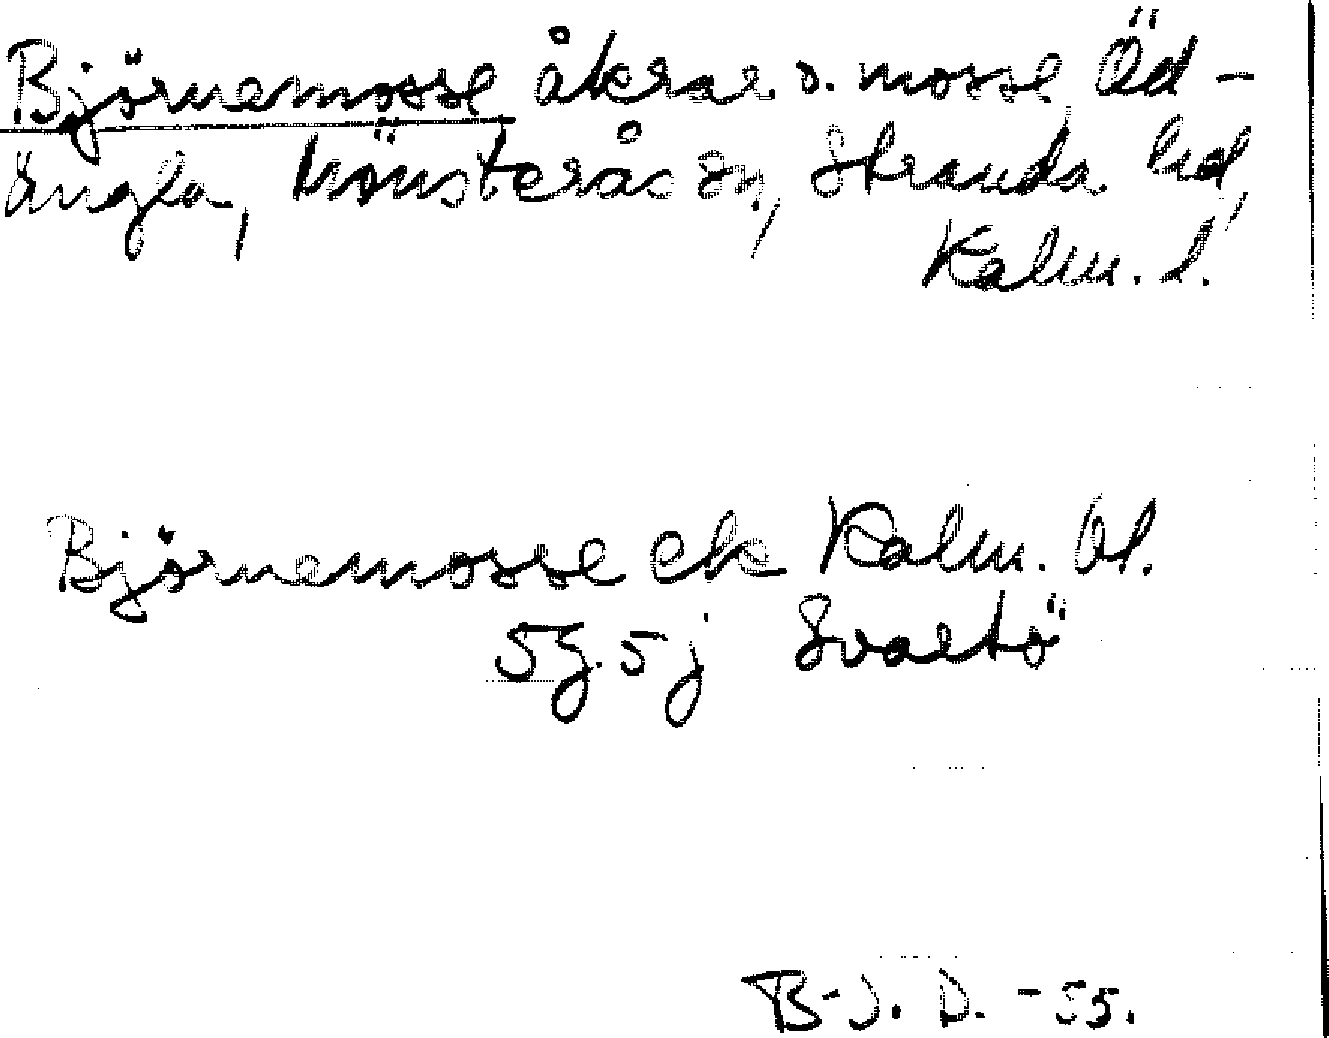 Björnemosse åkrar o. mosse Öd-
ängla, Mönsterås sn, Stranda hd,
Kalm. l.
Björnemosse ek Kalm. bl.
5g. 5j Svartö
B-J. D. -55.